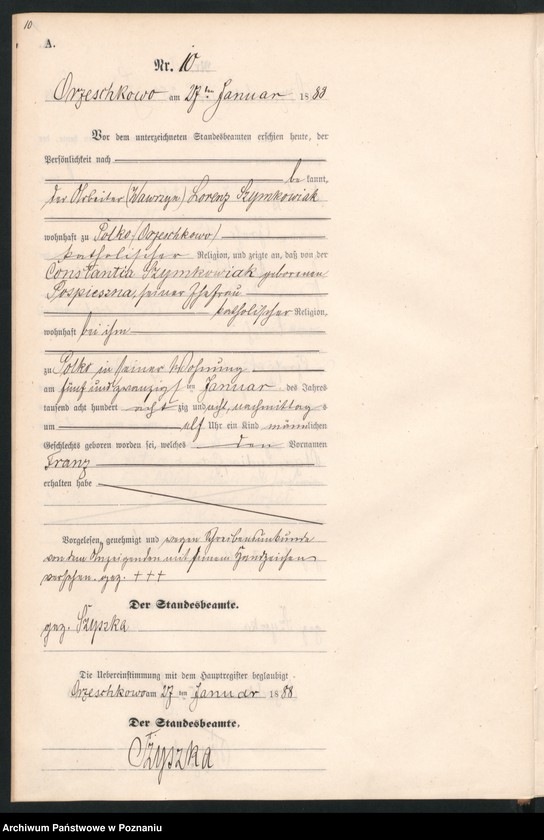 10
A.
Nr. 10
Orzeschkowo am 27ten Januar 1888
Vor dem unterzeichneten Standesbeamten erschien heute, der
Persönlichkeit nach
be kannt,
der Arbeiter (Wawrzyn) Lorenz Szymkowiak
wohnhaft zu Polko (Orzeschkowo)
katholischer Religion, und zeigte an, daß von der
Constantia Szymkowiak geborenen
Pospieszna, seiner Ehefrau
katholischer Religion,
wohnhaft bei ihm
zu Polko in seiner Wohnung
am fünf und zwanzigsten Januar des Jahres
tausend acht hundert achtzig und acht, nachmittags
um elf Uhr ein Kind männlichen
Geschlechts geboren worden sei, welches den Vornamen
Franz
erhalten habe
Vorgelesen, genehmigt und wegen Schreibensunkunde
von dem Anzeigenden mit seinem Handzeichen
versehen. gez. +++
Der Standesbeamte.
gez. Szyszka
Die Uebereinstimmung mit dem Hauptregister beglaubigt
Orzeschkowo am 27ten Januar 1888
Der Standesbeamte.
Szyszka
Archiwum Państwowe w Poznaniu